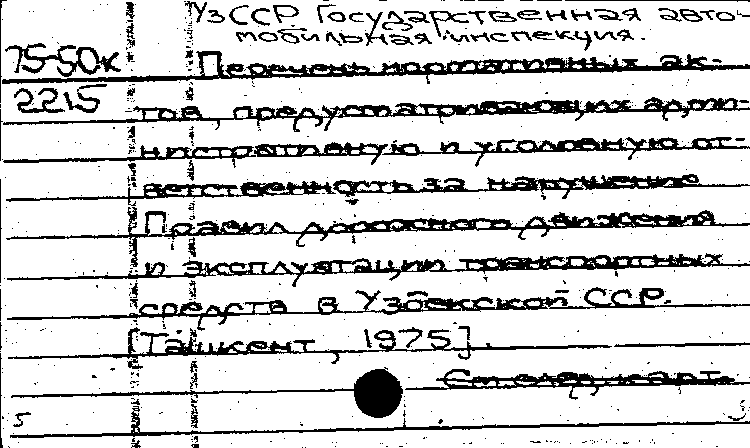 УзССР Государственная авто-
мобильная инспекция.
75-50к
Перечень нормативных ак-
2215
тов, предусматривающих адми-
нистративную и уголовную от-
ветственность за нарушение
Правил дорожного движения
и эксплуатации транспортных
средств в Узбекской ССР.
[Ташкент, 1975].
См след. карт.
5